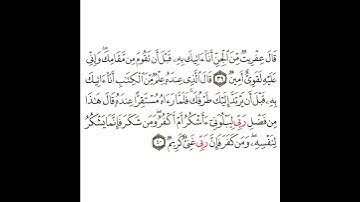 قَالَ عِفْرِيتٌ مِّنَ ٱلْجِنِّ أَنَا۠ ءَاتِيكَ بِهِۦ قَبْلَ أَن تَقُومَ مِن مَّقَامِكَ ۖ وَإِنِّى
عَلَيْهِ لَقَوِىٌّ أَمِينٌ ٣٩ قَالَ ٱلَّذِى عِندَهُۥ عِلْمٌ مِّنَ ٱلْكِتَـٰبِ أَنَا۠ ءَاتِيكَ
بِهِۦ قَبْلَ أَن يَرْتَدَّ إِلَيْكَ طَرْفُكَ ۚ فَلَمَّا رَءَاهُ مُسْتَقِرًّا عِندَهُۥ قَالَ هَـٰذَا
مِن فَضْلِ رَبِّى لِيَبْلُوَنِىٓ ءَأَشْكُرُ أَمْ أَكْفُرُ ۖ وَمَن شَكَرَ فَإِنَّمَا يَشْكُرُ
لِنَفْسِهِۦ ۖ وَمَن كَفَرَ فَإِنَّ رَبِّى غَنِىٌّ كَرِيمٌ ٤٠